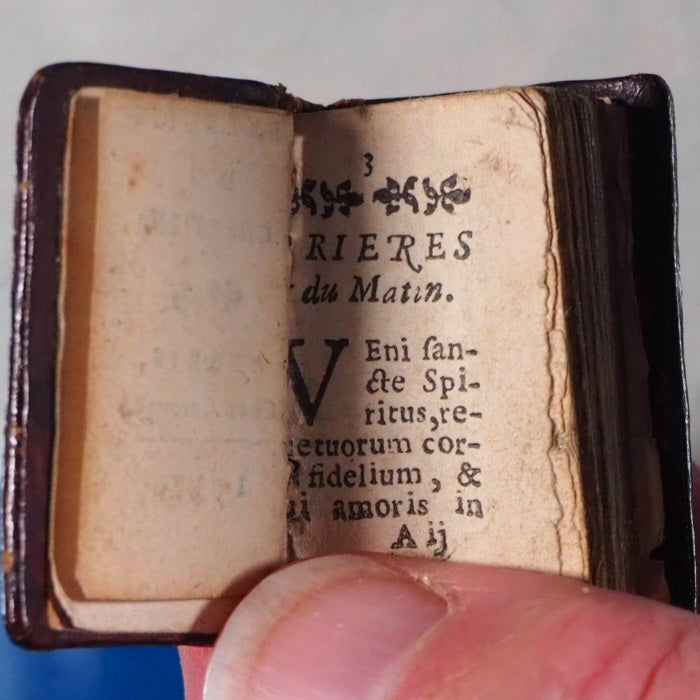 3
PRIERES
du Matin.
VEni ſan-
cte Spi-
ritus,re-
tuorum cor-
fidelium, &
ui amoris in
A ij